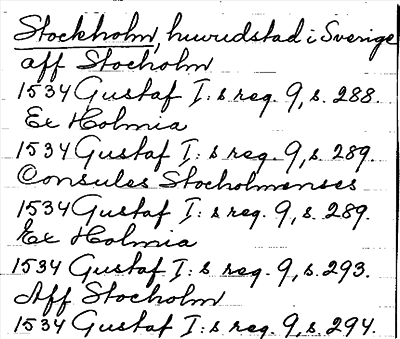 Stockholm, huvudstad i Sverige
aff Stocholm
1534 Gustaf I: s reg. 9, s. 288.
Ex Holmia
1534 Gustaf I: s reg. 9, s. 289.
Consules Stocholmenses
1534 Gustaf I: s reg. 9, s. 289.
Ex Holmia
1534 Gustaf I: s reg. 9, s. 293.
Aff Stocholm
1534 Gustaf I: s reg. 9, s. 294.